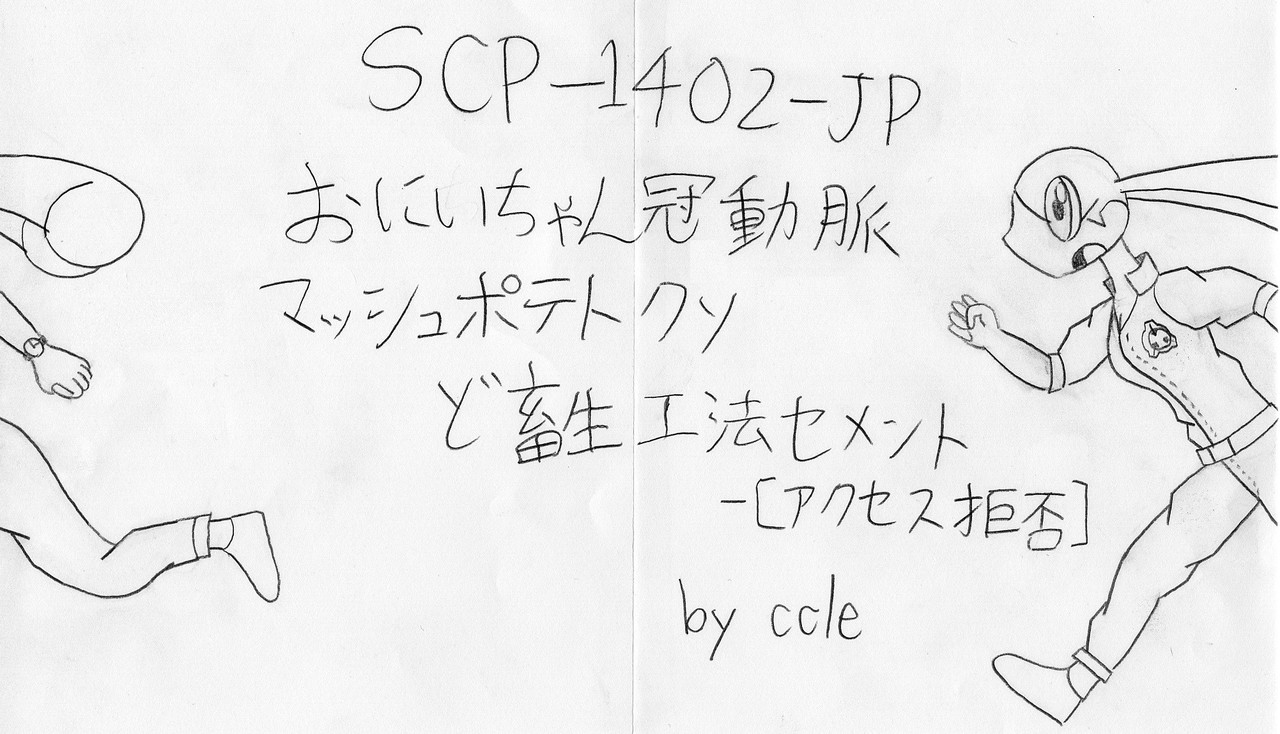 SCP-1402-JP
おにいちゃん冠動脈
マッシュポテトクソ
ど畜生工法セメント
-[アクセス拒否]
by ccle